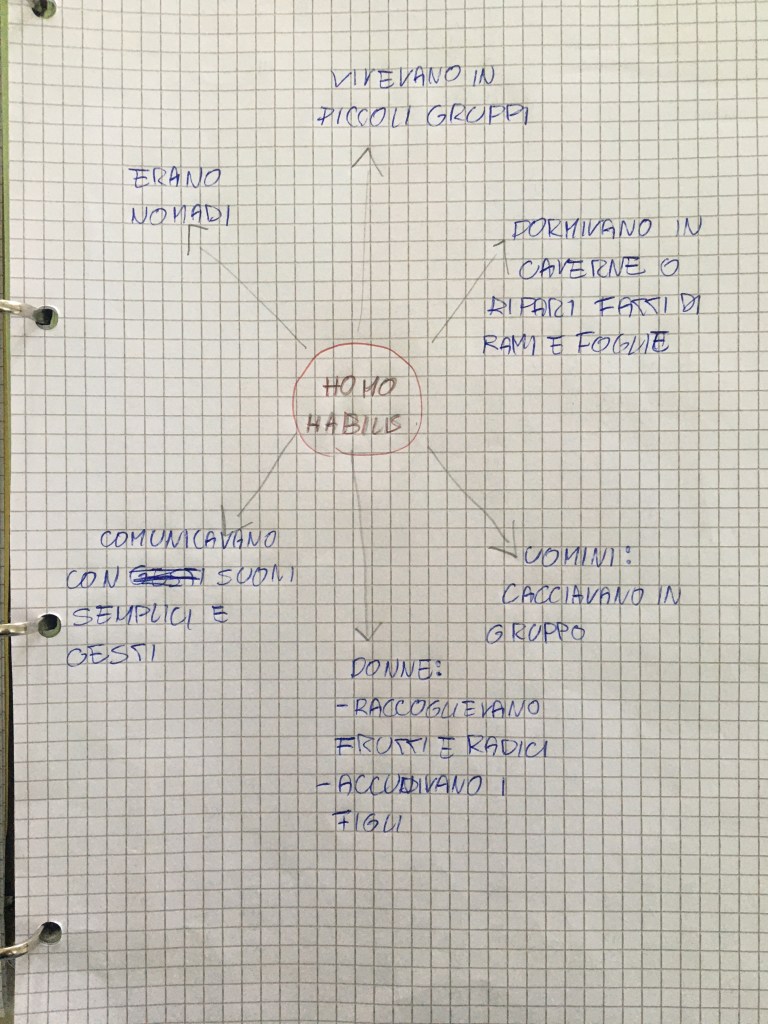 VIVEVANO IN
PICCOLI GRUPPI
ERANO
NOMADI
DORMIVANO IN
CAVERNE O
RIPARI FATTI DI
RAMI E FOGLIE
HOMO
HABILIS
COMUNICAVANO
CON GESTI SUONI
SEMPLICI E
GESTI
UOMINI:
CACCIAVANO IN
GRUPPO
DONNE:
-RACCOGLIEVANO
FRUTTI E RADICI
-ACCUDIVANO I
FIGLI